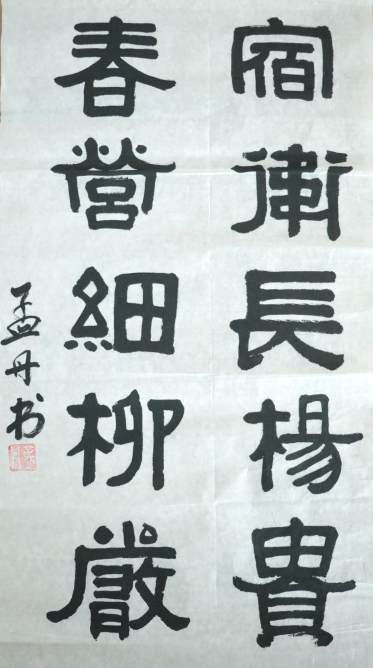 宿衛長楊貴
春營細柳嚴
孟丹书